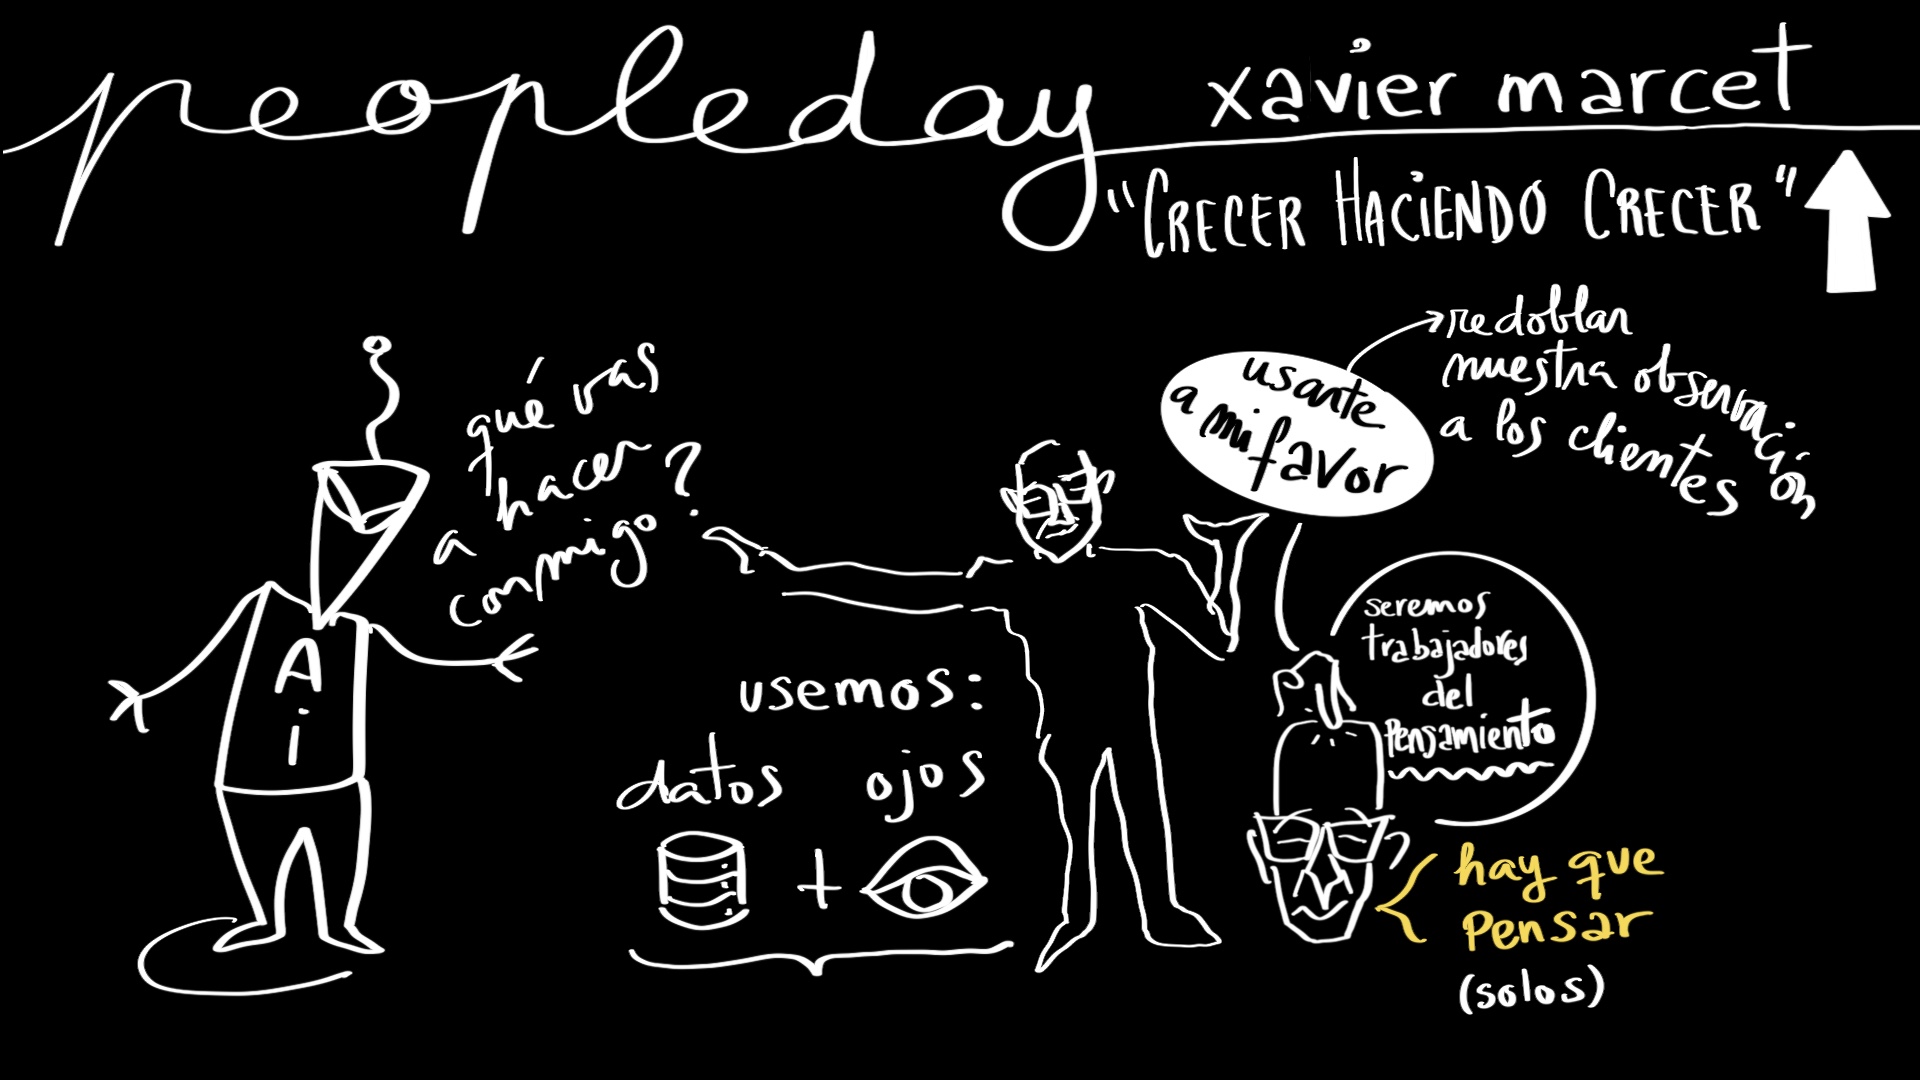 peopleday
xavier marcet
"CRECER HACIENDO CRECER"
qué vas
a hacer
conmigo?
usarte
a mi favor
redoblar
nuestra observación
a los clientes
Ai
usemos:
datos ojos
+
seremos
trabajadores
del
Pensamiento
hay que
Pensar
(solos)